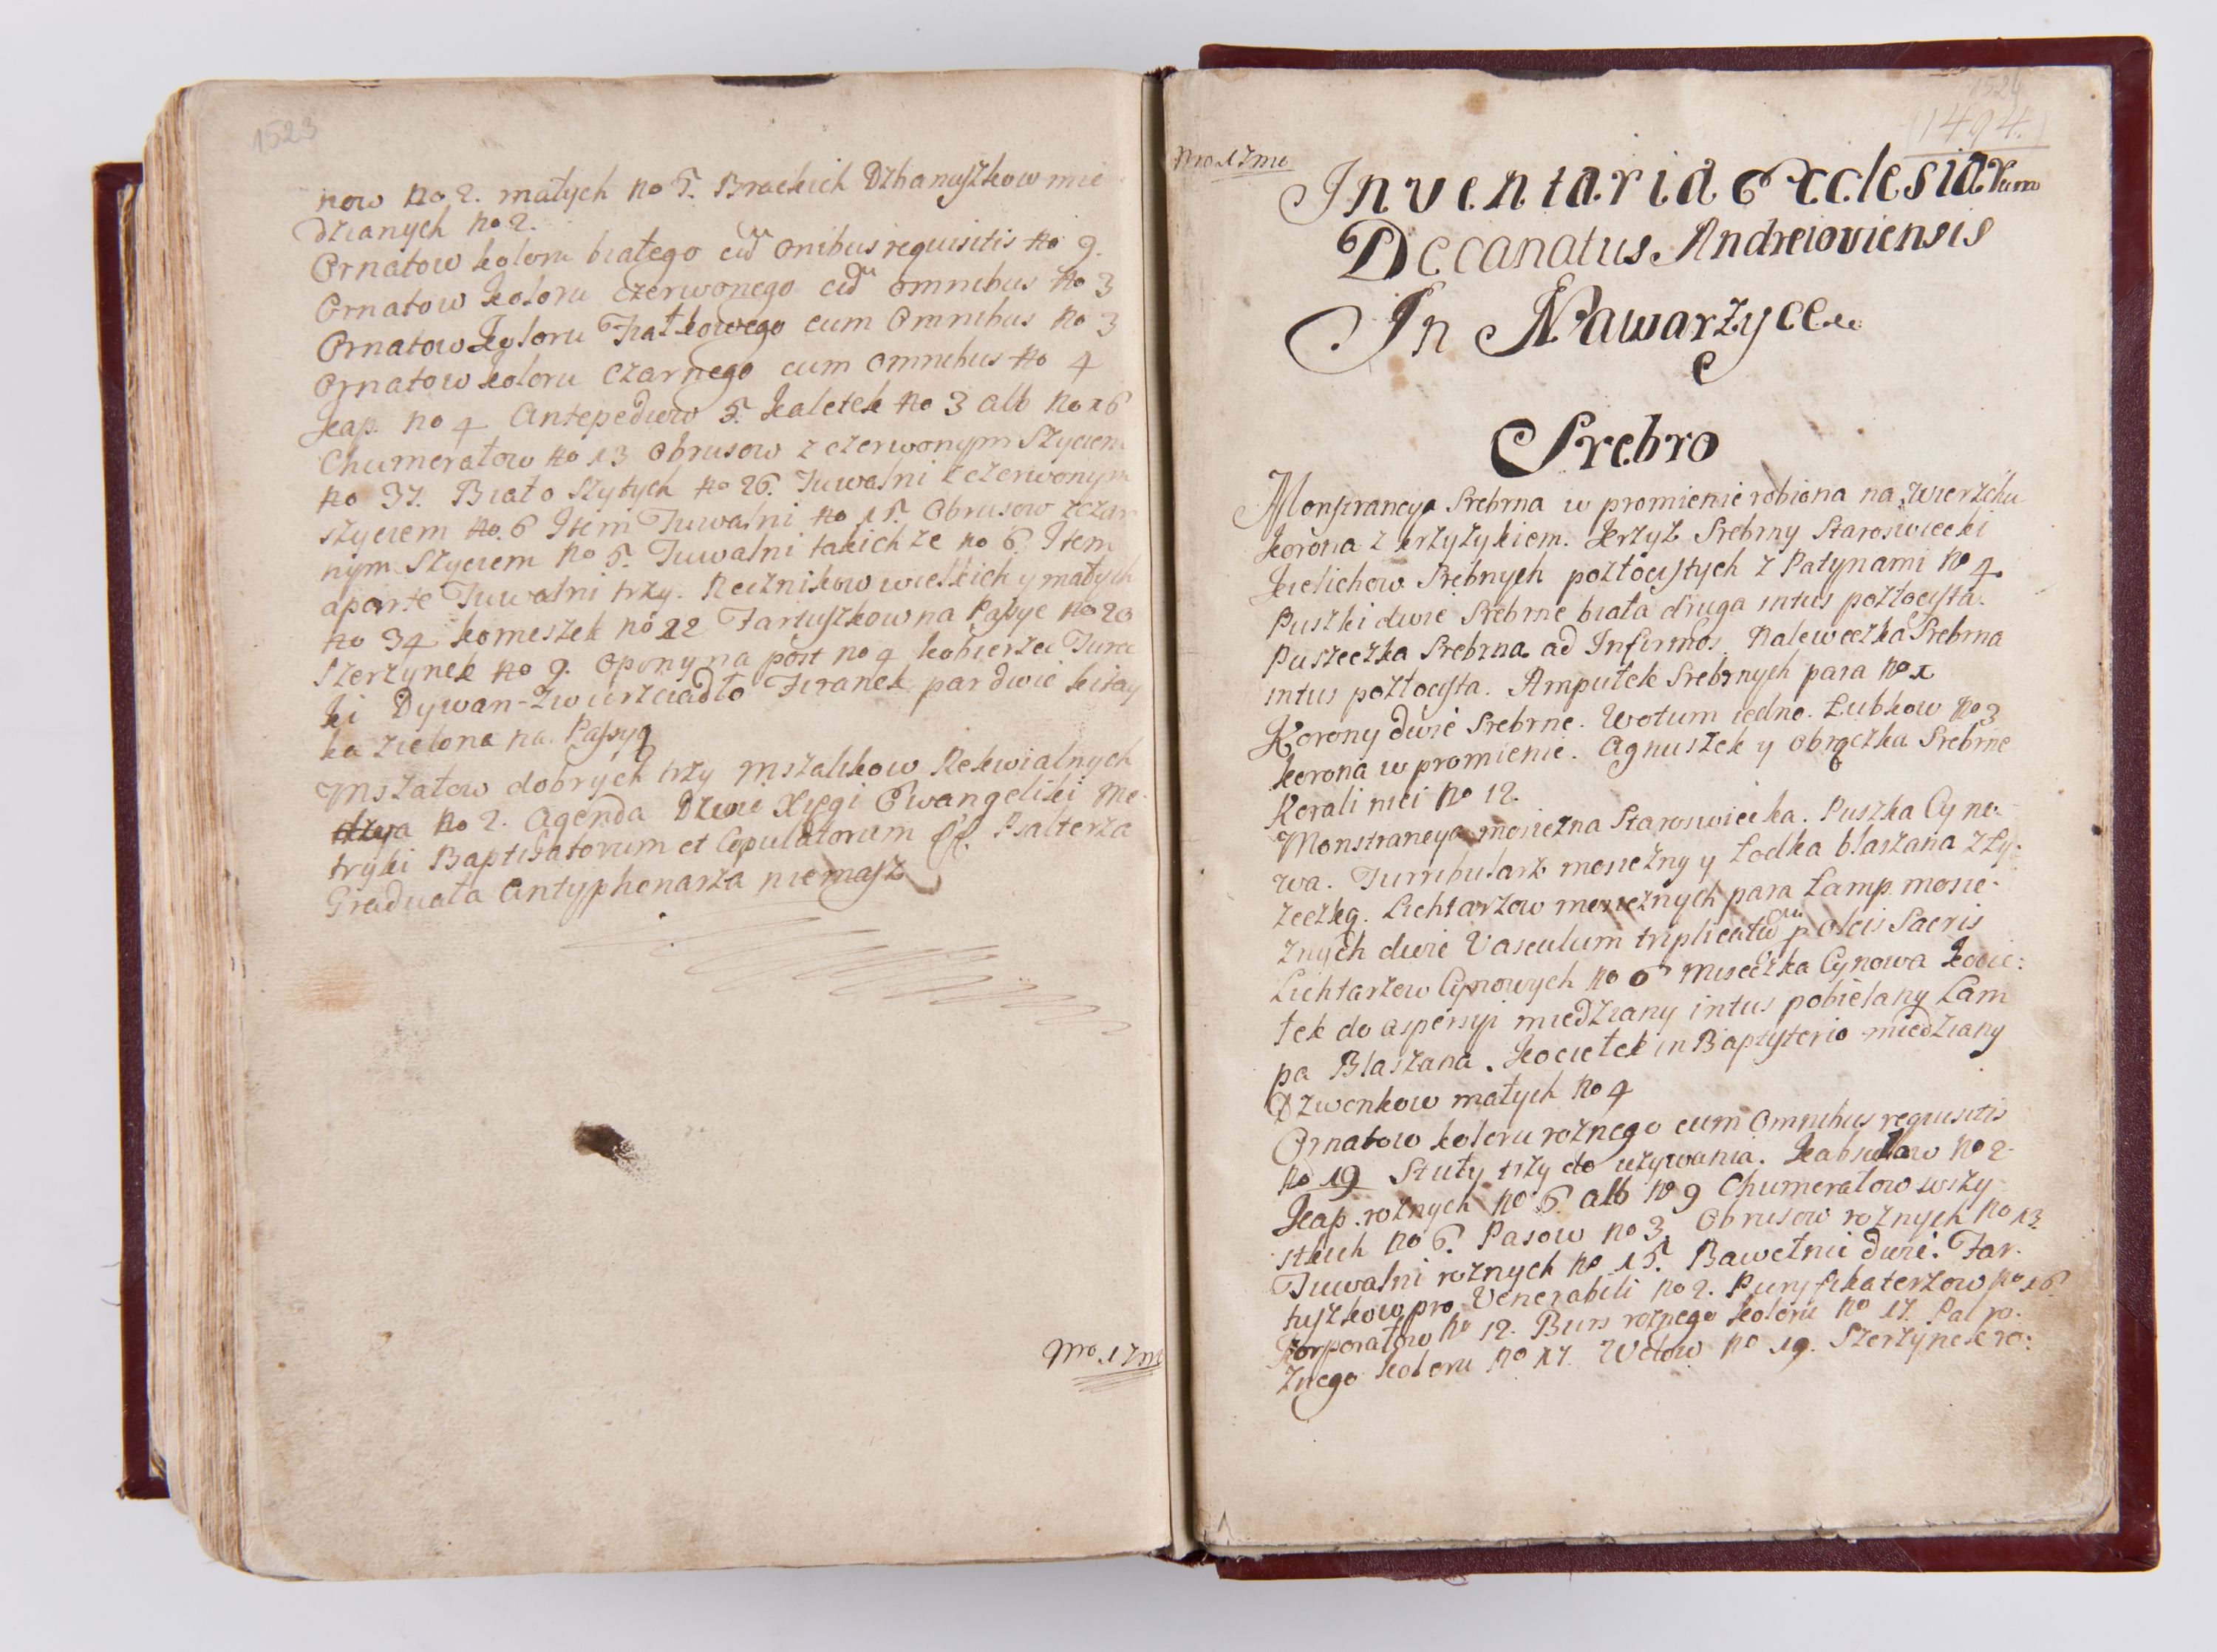 1523
now no 2. małych no 5. Brackich Dzbanuszkow mie
dzianych no 2.
Ornatow koloru białego cũ onibus requisitis no 9.
Ornatow koloru czerwonego cũ omnibus no 3
Ornatow koloru Fiałkowego cum Omnibus no 3
Ornatow koloru Czarnego cum omnibus no 4
Kap. no 4 Antepedyow 5. Kaletek no 3 alb no 16
Chumerałow no 13 Obrusow z czerwonym Szyciem
no 37. Biało Szytych no 26. Tuwalni z czerwonym
szyciem no. 6 Item Tuwalni no 15. Obrusow z czar
nym Szyciem no 5. Tuwalni takich ze no 6. Item
aparte Tuwalni trzy. Recznikow wielkich y małych
no 34 komeszek no 22 Fartuszkow na Pasye no 20
Szerzynek no 9. Opony na post no 4 kobierzec Turec
ki Dywan-Zwierciadło Firanek par dwie kitay
ka zielona na Passyą
Mszałow dobrych trzy Mszalikow Rekwialnych
no 2. Agenda Dwie Xięgi Ewangeliki Me
tryki Baptisatorum et Copulatorum Psalterza
Graduała Antyphonarza niemasz
1524
(1494.)
Inventaria Ecclesiarum
Decanatus Andreioviensis
In Nawarzyce
Srebro
Monstrancya Srebrna w promienie robiona na zwierzchu
korona z krzyzykiem. Krzyz Srebrny Staroswiecki
Kielichow Srebnych pozłocistych z Patynami no 4.
Puszki dwie Srebrne biała druga intus pozłocista.
Puszeczka Srebrna ad Infirmos. Naleweczka Srebrna
intus pozłocista. Ampułek Srebrnych para no 1
Korony dwie Srebrne. Wotum iedno. Łubkow no 3
korona w promienie. Agnuszek y obrączka Srebrne
Korali nici no 12.
Monstrancya mosiezna Staroswiecka. Puszka Cyno.
wa. Turribularz mosiezny y Łodka blaszana z Ły:
zeczką. Lichtarzow mosieznych para Lamp. mosie.
znych dwie Vasculum triplicatũ p oleis Sacris
Lichtarzow Cynowych no 6 miseczka Cynowa Kocie:
łek do aspersyi miedziany intus pobielany Lam
pa Blaszana. Kociełek in Baptysterio miedziany
Dzwonkow małych no 4
Ornatow koloru roznego cum Omnibus requisitis
no 19 Stuły trzy do uzywania. no 2.
Kap. roznych no 6. alb no 9 Chumerałow wszy
stkich no 6. Pasow no 3. Obrusow roznych no 13.
Tuwalni roznych no 15. Bawełnic dwie. Far.
tuszkow pro Venerabili no 2. Puryfikaterzow no 16.
Korporałow no 12. Burs roznego koloru no 17. Pal ro.
znego koloru no 17. Welow no 19. Szerzynek ro: